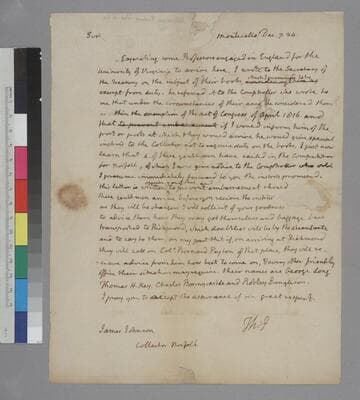 Sir Monticello Dec. 7. 24
Expecting some Professors engaged in England for the
University of Virginia to arrive here, I wrote to the Secretary of
the Treasury on the subject of their books,
exempt from duty. he referred it to the Comptroller who wrote to
me that under the circumstances of their case he considered them
within the exemption of the act of Congress of April 1816. and
that if I would inform him of the
port or ports at which they would arrive he would give special
instrns to the Collector not to require duty on the books. I just now
learn that 3. of these gentlemen have sailed in the Competitor
for Norfolk, of which I now give advice to the Comptroller who
I presume immediately forward to you the instrns promised.
this letter is written to prevent embarrasment should
these gentlemen arrive before you recieve the instrns
as they will be strangers I will sollicit of your goodness
to advise them how they may get themselves and baggage
transported to Richmond, which doubtless will be by the steamboats
and to say to them, on my part that if on arriving at Richmond
they will call on Colo. Bernard Peyton of that place, they will re-
cieve advice from him how best to come on, & every other friendly
office their situation may require. their names are George Long
Thomas H. Key, Charles Bonnycastle and Robley Dunglison.
I pray you to accept the assurance of my great respect.
Th: J
James Johnson
Collector Norfolk